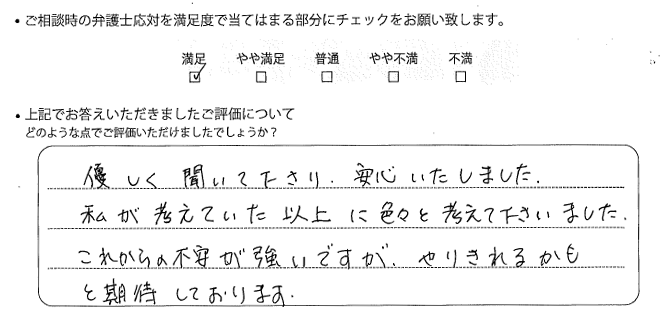 ・ご相談時の弁護士応対を満足度で当てはまる部分にチェックをお願い致します。
満足 やや満足 普通 やや不満 不満
☑ □ □ □ □
・上記でお答えいただきましたご評価について
どのような点でご評価いただけましたでしょうか？
優しく聞いて下さり、安心いたしました。
私が考えていた以上に色々と考えて下さいました。
これからの不安が強いですが、やりきれるかも
と期待しております。